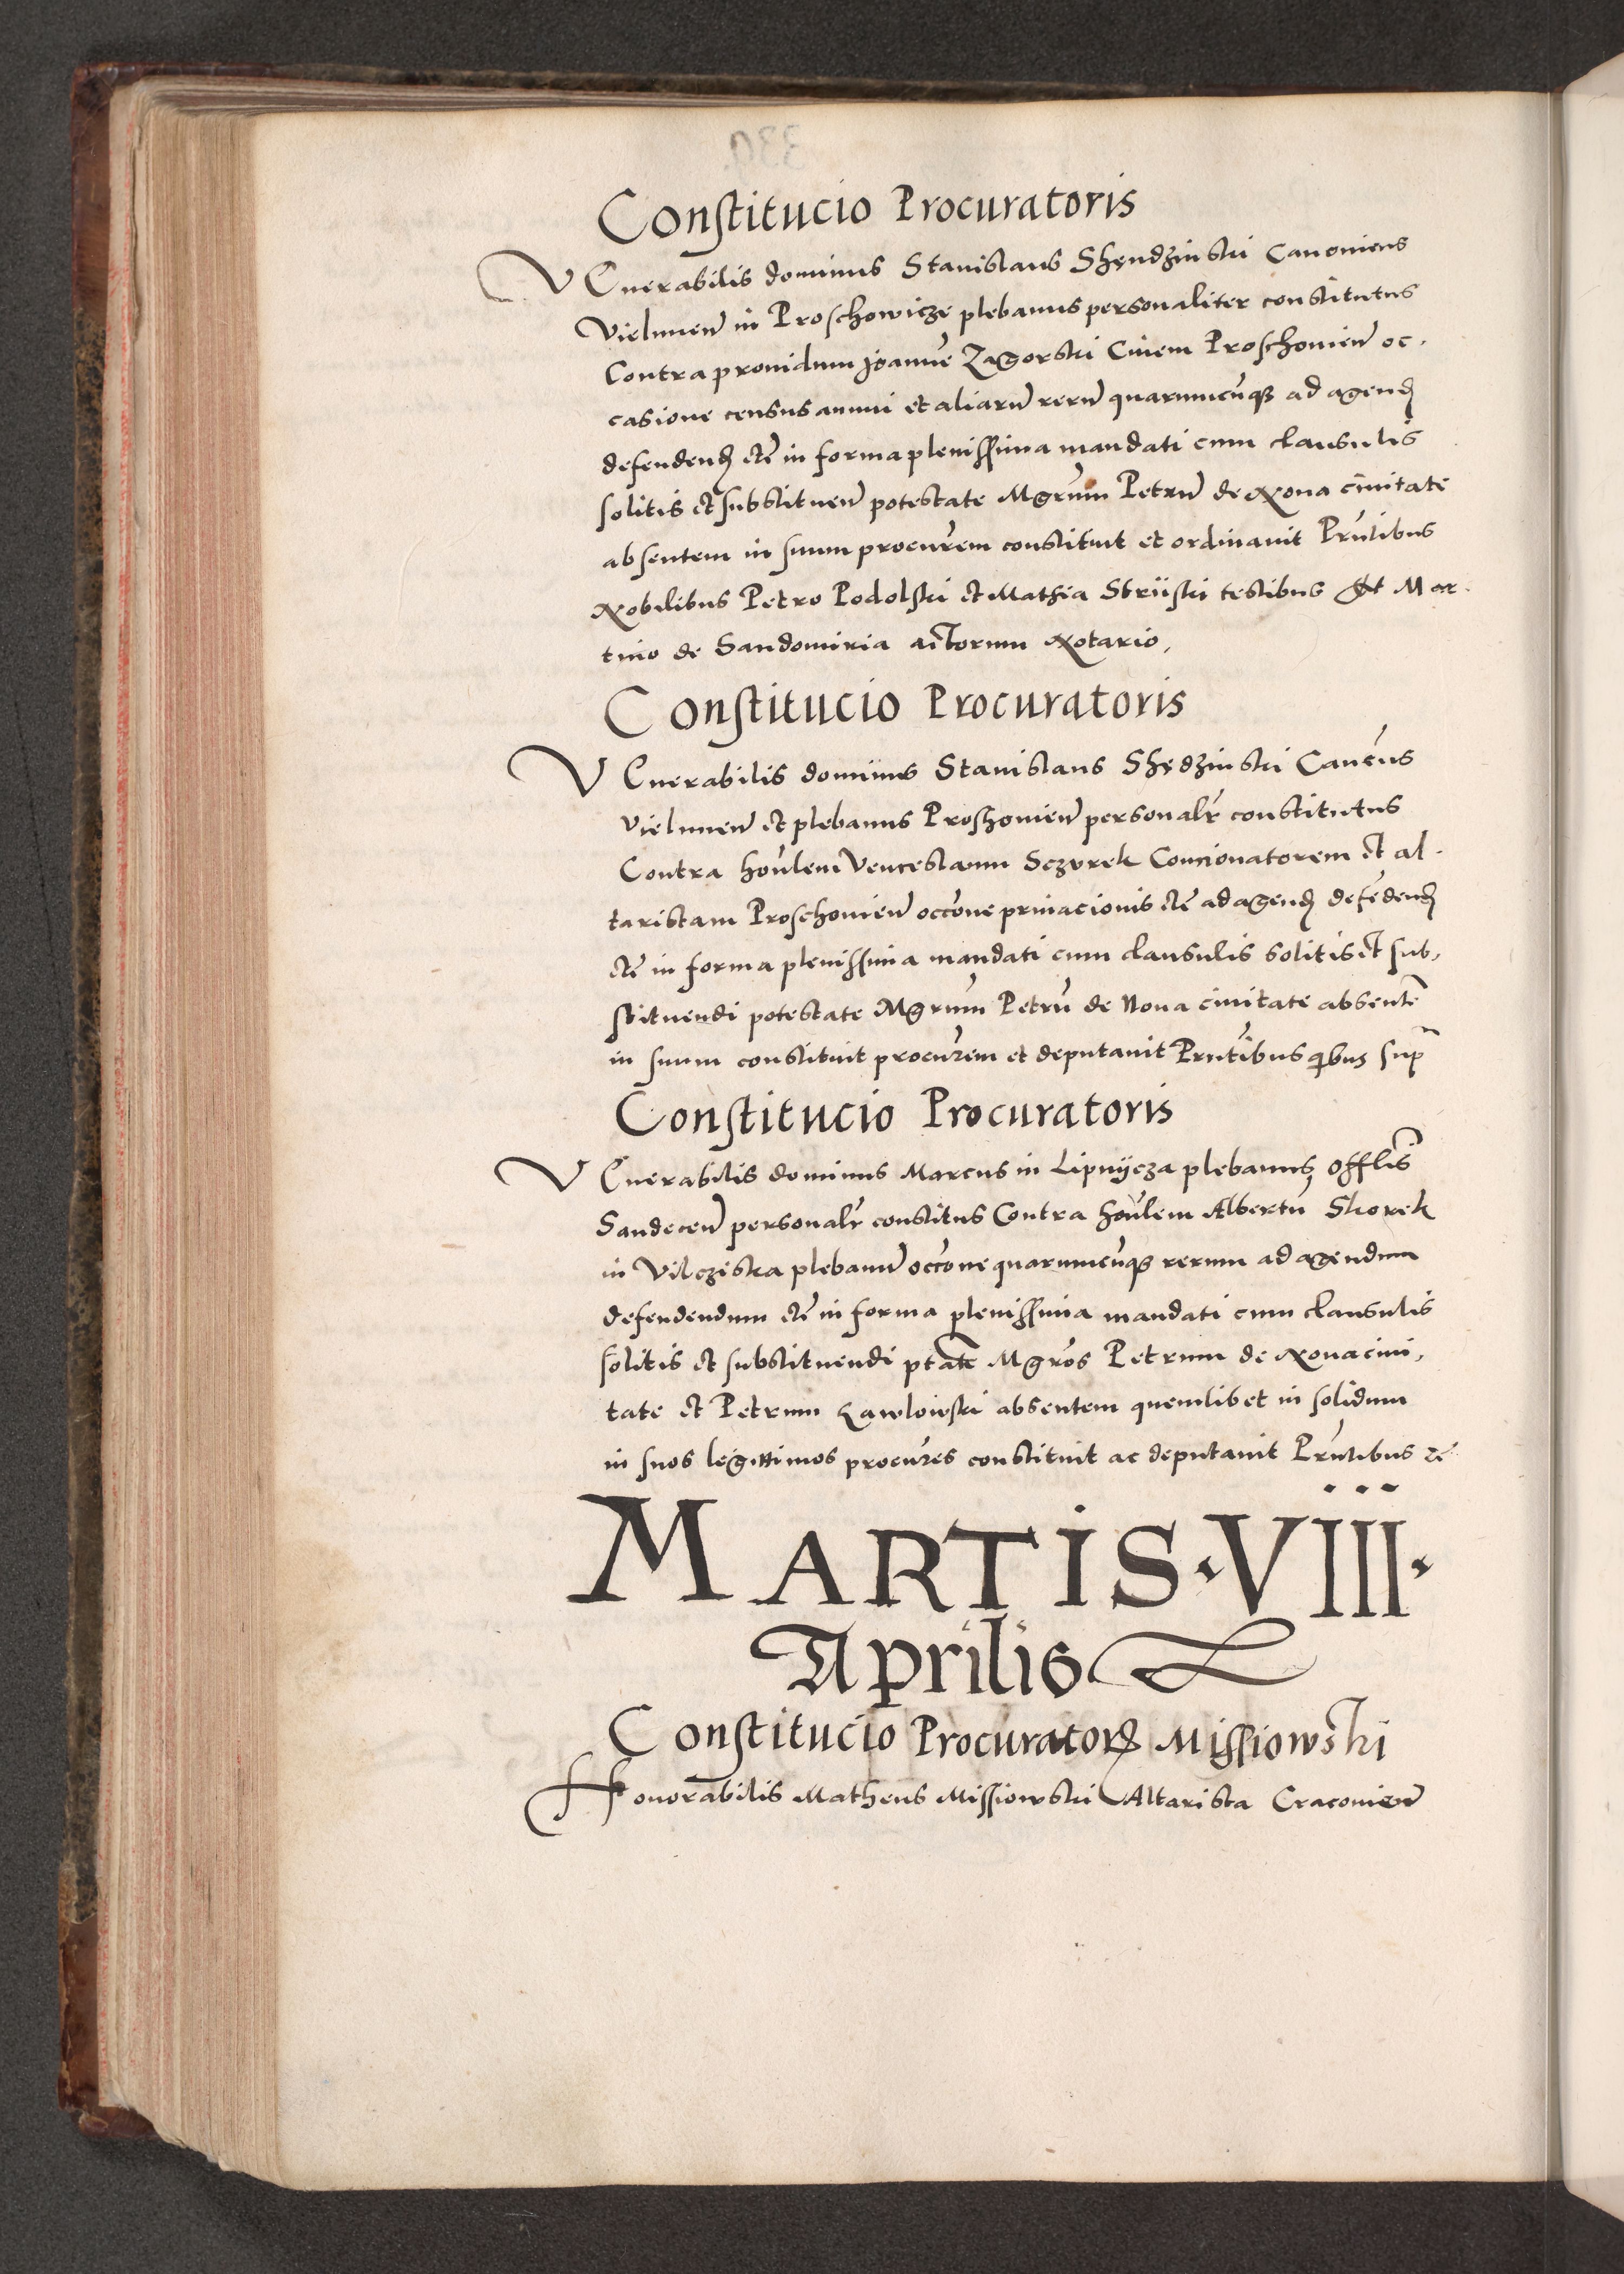 Constitucio Procuratoris
VEnerabilis dominus Stanislaus Skęndzinski Canonicus
Vielunen̄ in Proschowicze plebanus personaliter constitutus
Contra prouidum Joannē Zagorski Ciuem Proschouien̄ oc-
casione census annui et aliarū rerū quarumcūq3 ad agend̄
defendend̄ etc̄ in forma plenissima mandati cum clausulis
solitis et substituen̄ potestate Mgrūm Petrū de Noua ciuitate
absentem in suum procurēm constituit et ordinauit Prn̄tibus
Nobilibus Petro Podolski et Mathia Strÿski testibus Et Mar-
tino de Sandomiria actorum Notario,
Constitucio Procuratoris
VEnerabilis dominus Stanislaus Skędzinski Cancūs
Vielunen̄ et plebanus Proshouien̄ personalr̄ constitutus
Contra hon̄lem Venceslaum Sczvrek Concionatorem et al-
taristam Proschouien̄ occōne priuacionis etc̄ ad agend̄ defēdend̄
etc̄ in forma plenissima mandati cum clausulis solitis et sub,
stituendi potestate Mgrūm Petrū de Noua ciuitate absentē
in suum constituit procurēm et deputauit Prn̄tibus qibus sup̄
Constitucio Procuratoris
VEnerabilis dominus Marcus in Lipnÿcza plebanus, offlīs
Sandecen̄ personalr̄ constitus Contra hon̄lem Albertū Skorek
in Vilcziska plebanū occōne quarumcūq3 rerum ad agendum
defendendum etc̄ in forma plenissima mandati cum clausulis
solitis et substituendi ptāte Mgrōs Petrum de Noua ciui,
tate et Petrum absentem quemlibet in solidum
in suos legittimos procurēs constituit ac deputauit Prn̄tibus etc̄
MARTIS·VIII·
Aprilis
Constitucio Procuratoris Missiowski
Honorabilis Matheus Missiowski Altarista Cracouien̄